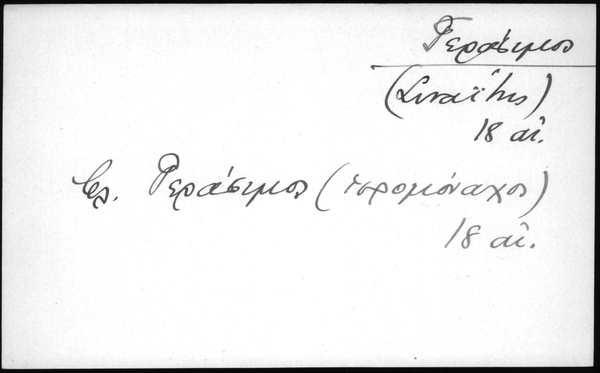 Γεράσιμος
(Σιναΐτης)
18 αἰ.
βλ. Γεράσιμος (ἱερομόναχος)
18 αἰ.